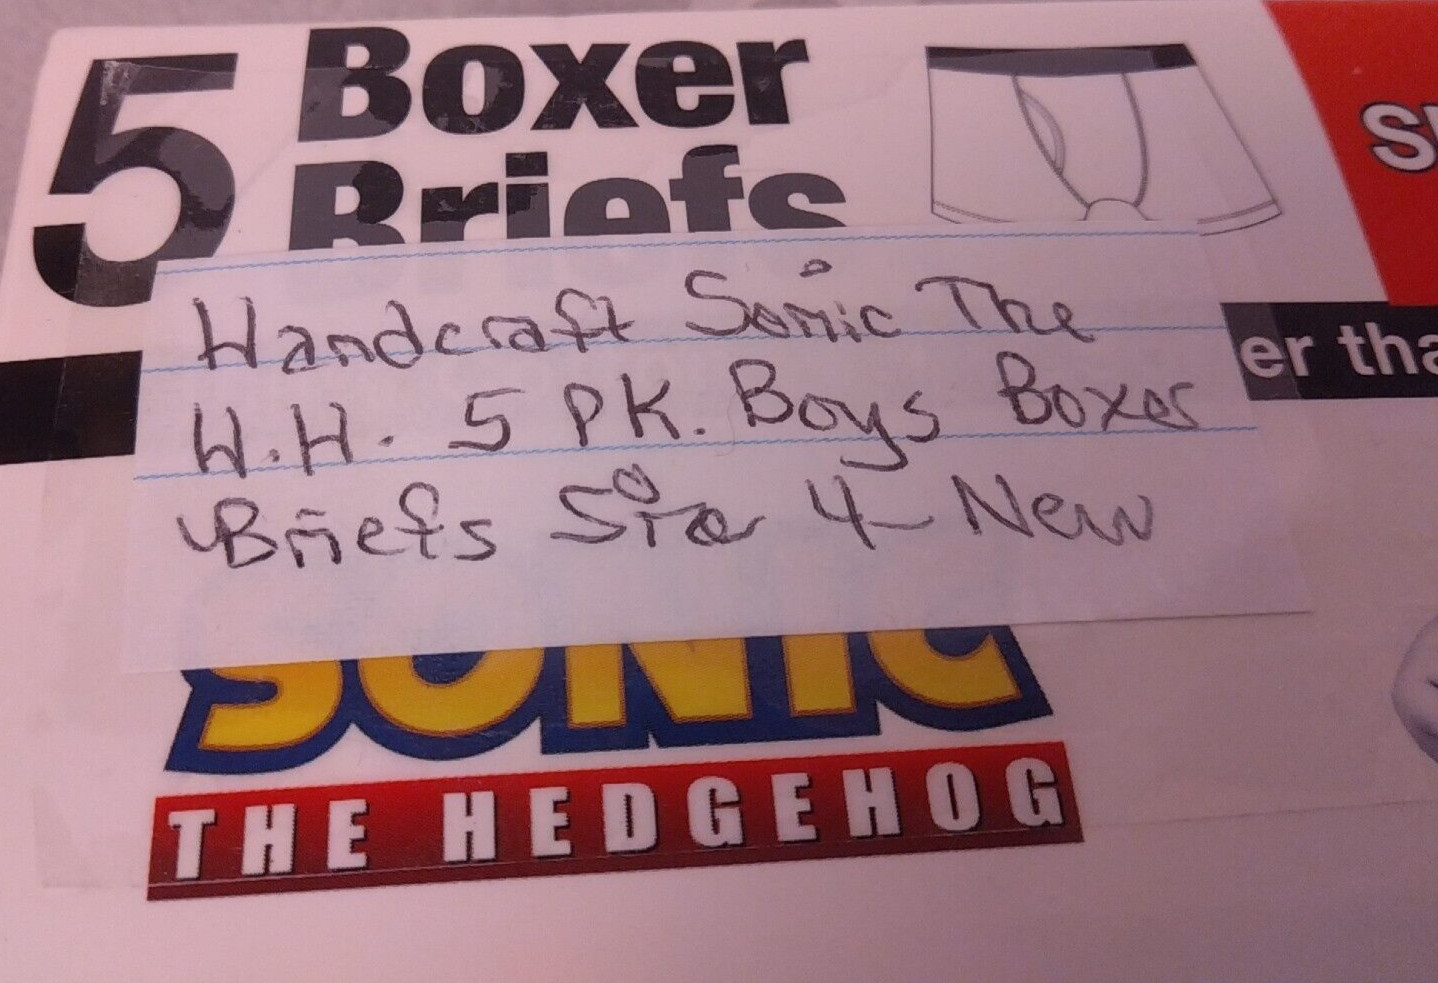 5 Boxer
Briefs
er tha
Handcraft Sonic The
H.H. 5 PK. Boys Boxer
Briefs Size 4- New
SONIC
THE HEDGEHOG